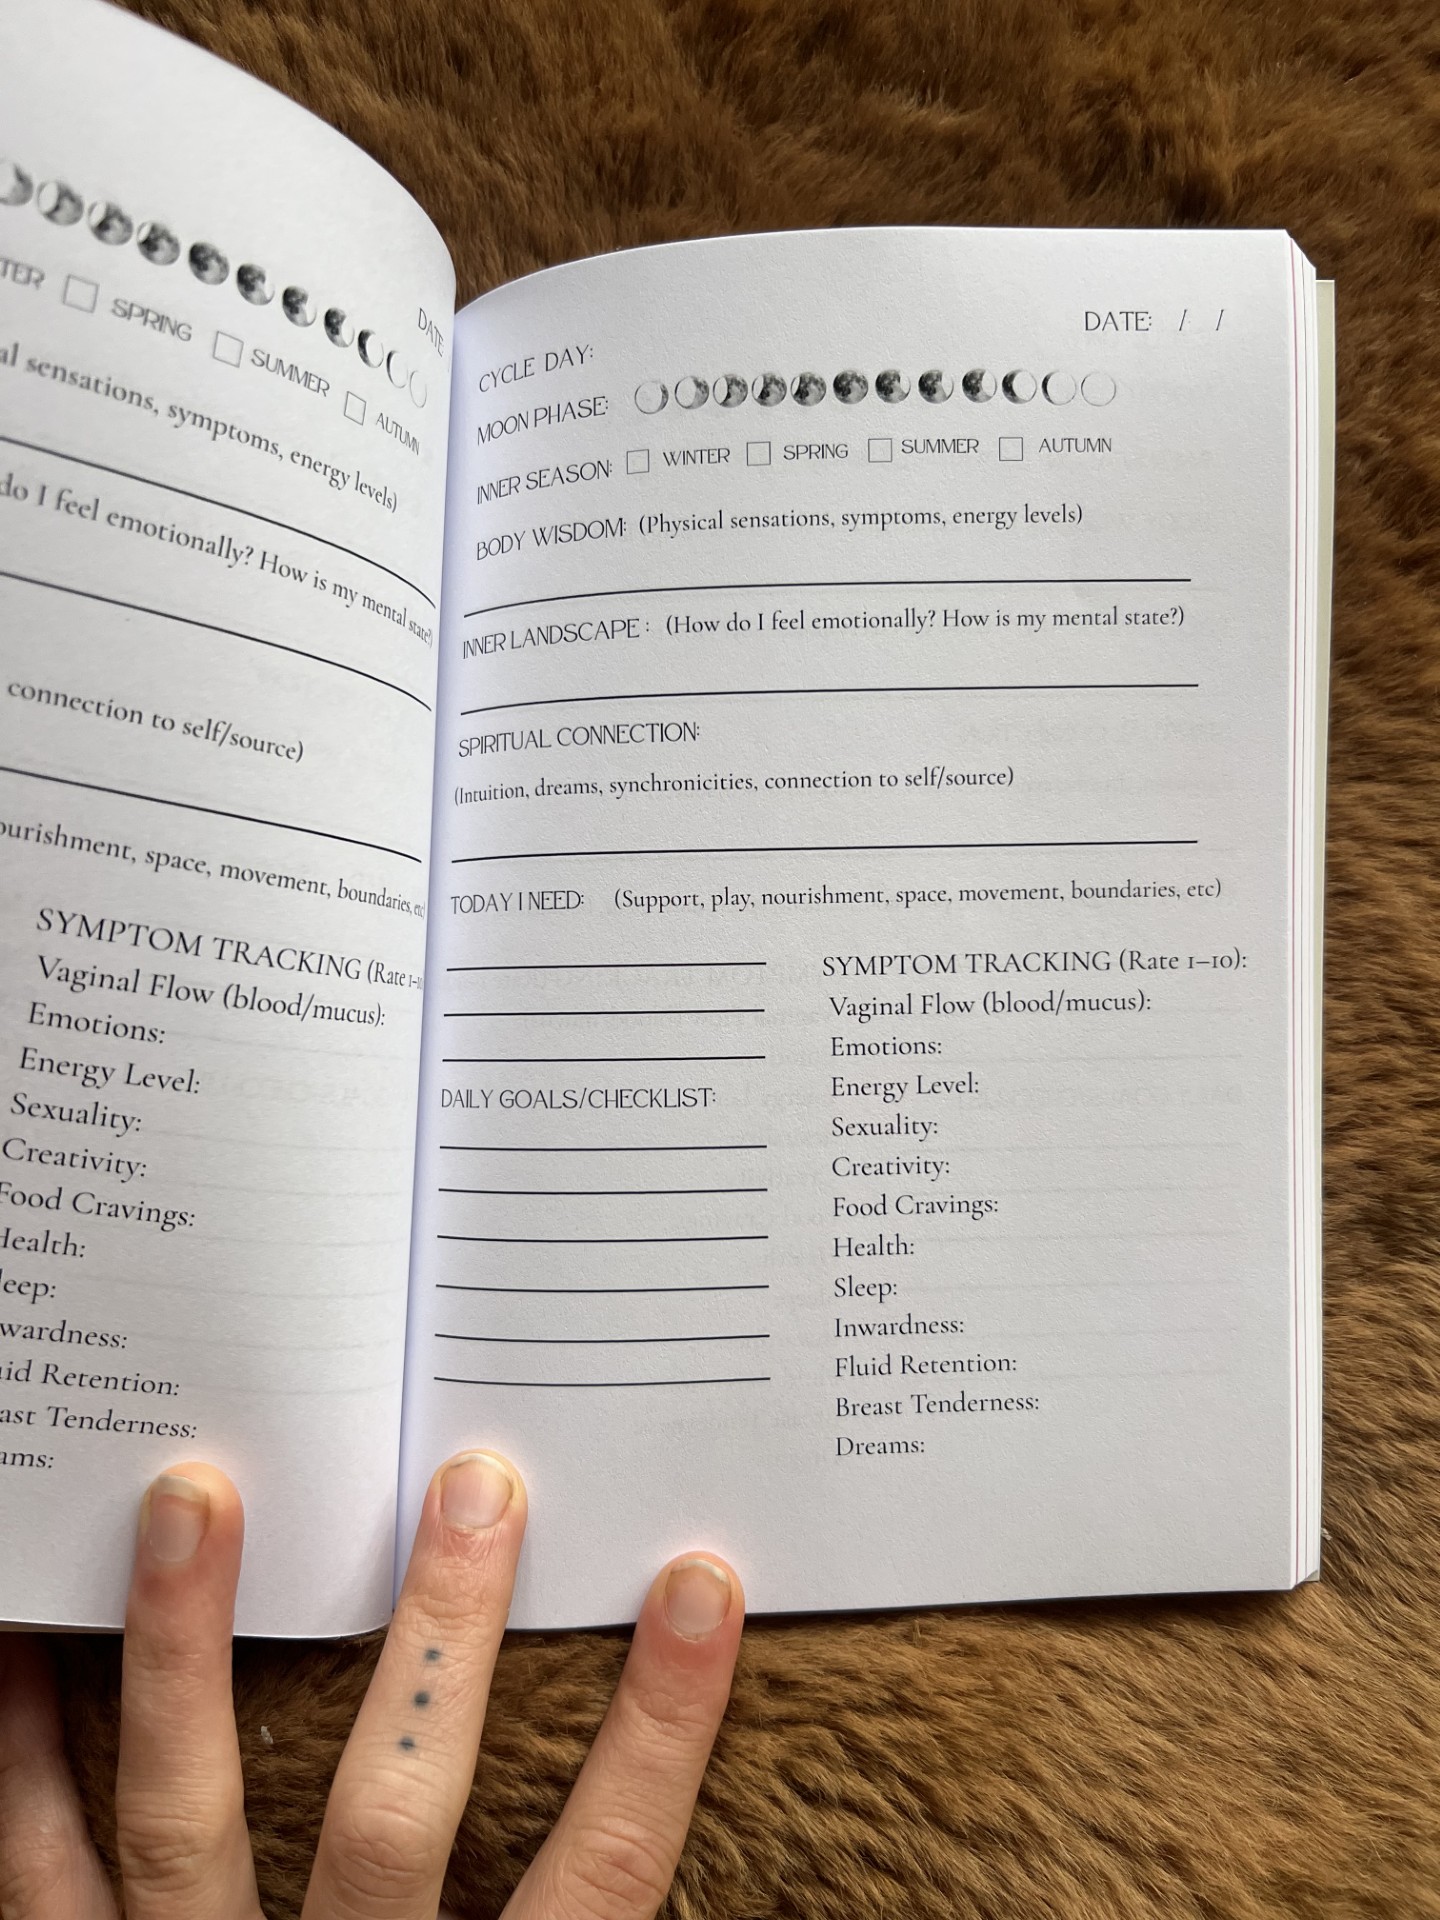 DATE
TER SPRING SUMMER AUTUMN
al sensations, symptoms, energy levels)
do I feel emotionally? How is my mental state?)
connection to self/source)
ourishment, space, movement, boundaries, etc)
SYMPTOM TRACKING (Rate 1-10
Vaginal Flow (blood/mucus):
Emotions:
Energy Level:
Sexuality:
Creativity:
Food Cravings:
Health:
leep:
wardness:
uid Retention:
ast Tenderness:
ams:
DATE: / /
CYCLE DAY:
MOON PHASE:
INNER SEASON: WINTER SPRING SUMMER AUTUMN
BODY WISDOM: (Physical sensations, symptoms, energy levels)
INNER LANDSCAPE : (How do I feel emotionally? How is my mental state?)
SPIRITUAL CONNECTION:
(Intuition, dreams, synchronicities, connection to self/source)
TODAY I NEED: (Support, play, nourishment, space, movement, boundaries, etc)
DAILY GOALS/CHECKLIST:
SYMPTOM TRACKING (Rate 1–10):
Vaginal Flow (blood/mucus):
Emotions:
Energy Level:
Sexuality:
Creativity:
Food Cravings:
Health:
Sleep:
Inwardness:
Fluid Retention:
Breast Tenderness:
Dreams: